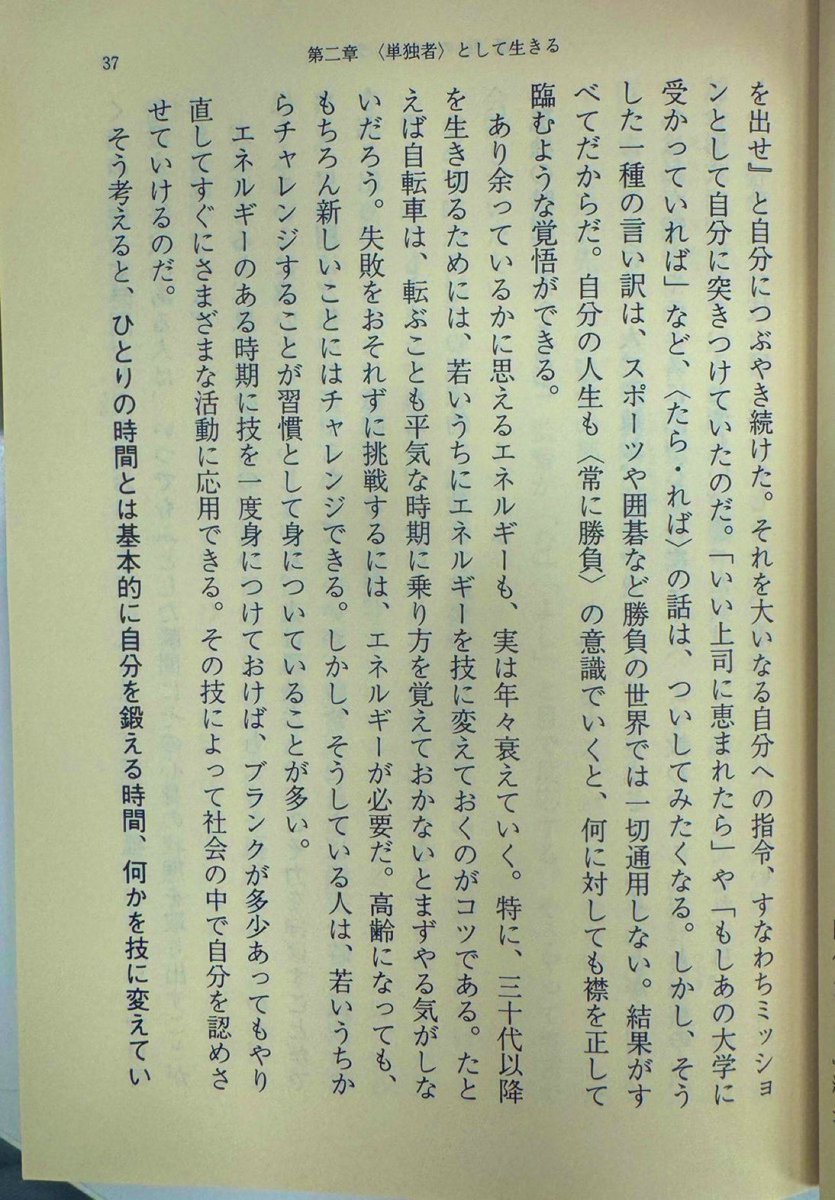 37
第二章 〈単独者〉として生きる
を出せ』と自分につぶやき続けた。それを大いなる自分への指令、すなわちミッショ
ンとして自分に突きつけていたのだ。「いい上司に恵まれたら」や「もしあの大学に
受かっていれば」など、〈たら・れば〉の話は、ついしてみたくなる。しかし、そう
した一種の言い訳は、スポーツや囲碁など勝負の世界では一切通用しない。結果がす
べてだからだ。自分の人生も〈常に勝負〉の意識でいくと、何に対しても襟を正して
臨むような覚悟ができる。
あり余っているかに思えるエネルギーも、実は年々衰えていく。特に、三十代以降
を生き切るためには、若いうちにエネルギーを技に変えておくのがコツである。たと
えば自転車は、転ぶことも平気な時期に乗り方を覚えておかないとまずやる気がしな
いだろう。失敗をおそれずに挑戦するには、エネルギーが必要だ。高齢になっても、
もちろん新しいことにはチャレンジできる。しかし、そうしている人は、若いうちか
らチャレンジすることが習慣として身についていることが多い。
エネルギーのある時期に技を一度身につけておけば、ブランクが多少あってもやり
直してすぐにさまざまな活動に応用できる。その技によって社会の中で自分を認めさ
せていけるのだ。
そう考えると、ひとりの時間とは基本的に自分を鍛える時間、何かを技に変えてい